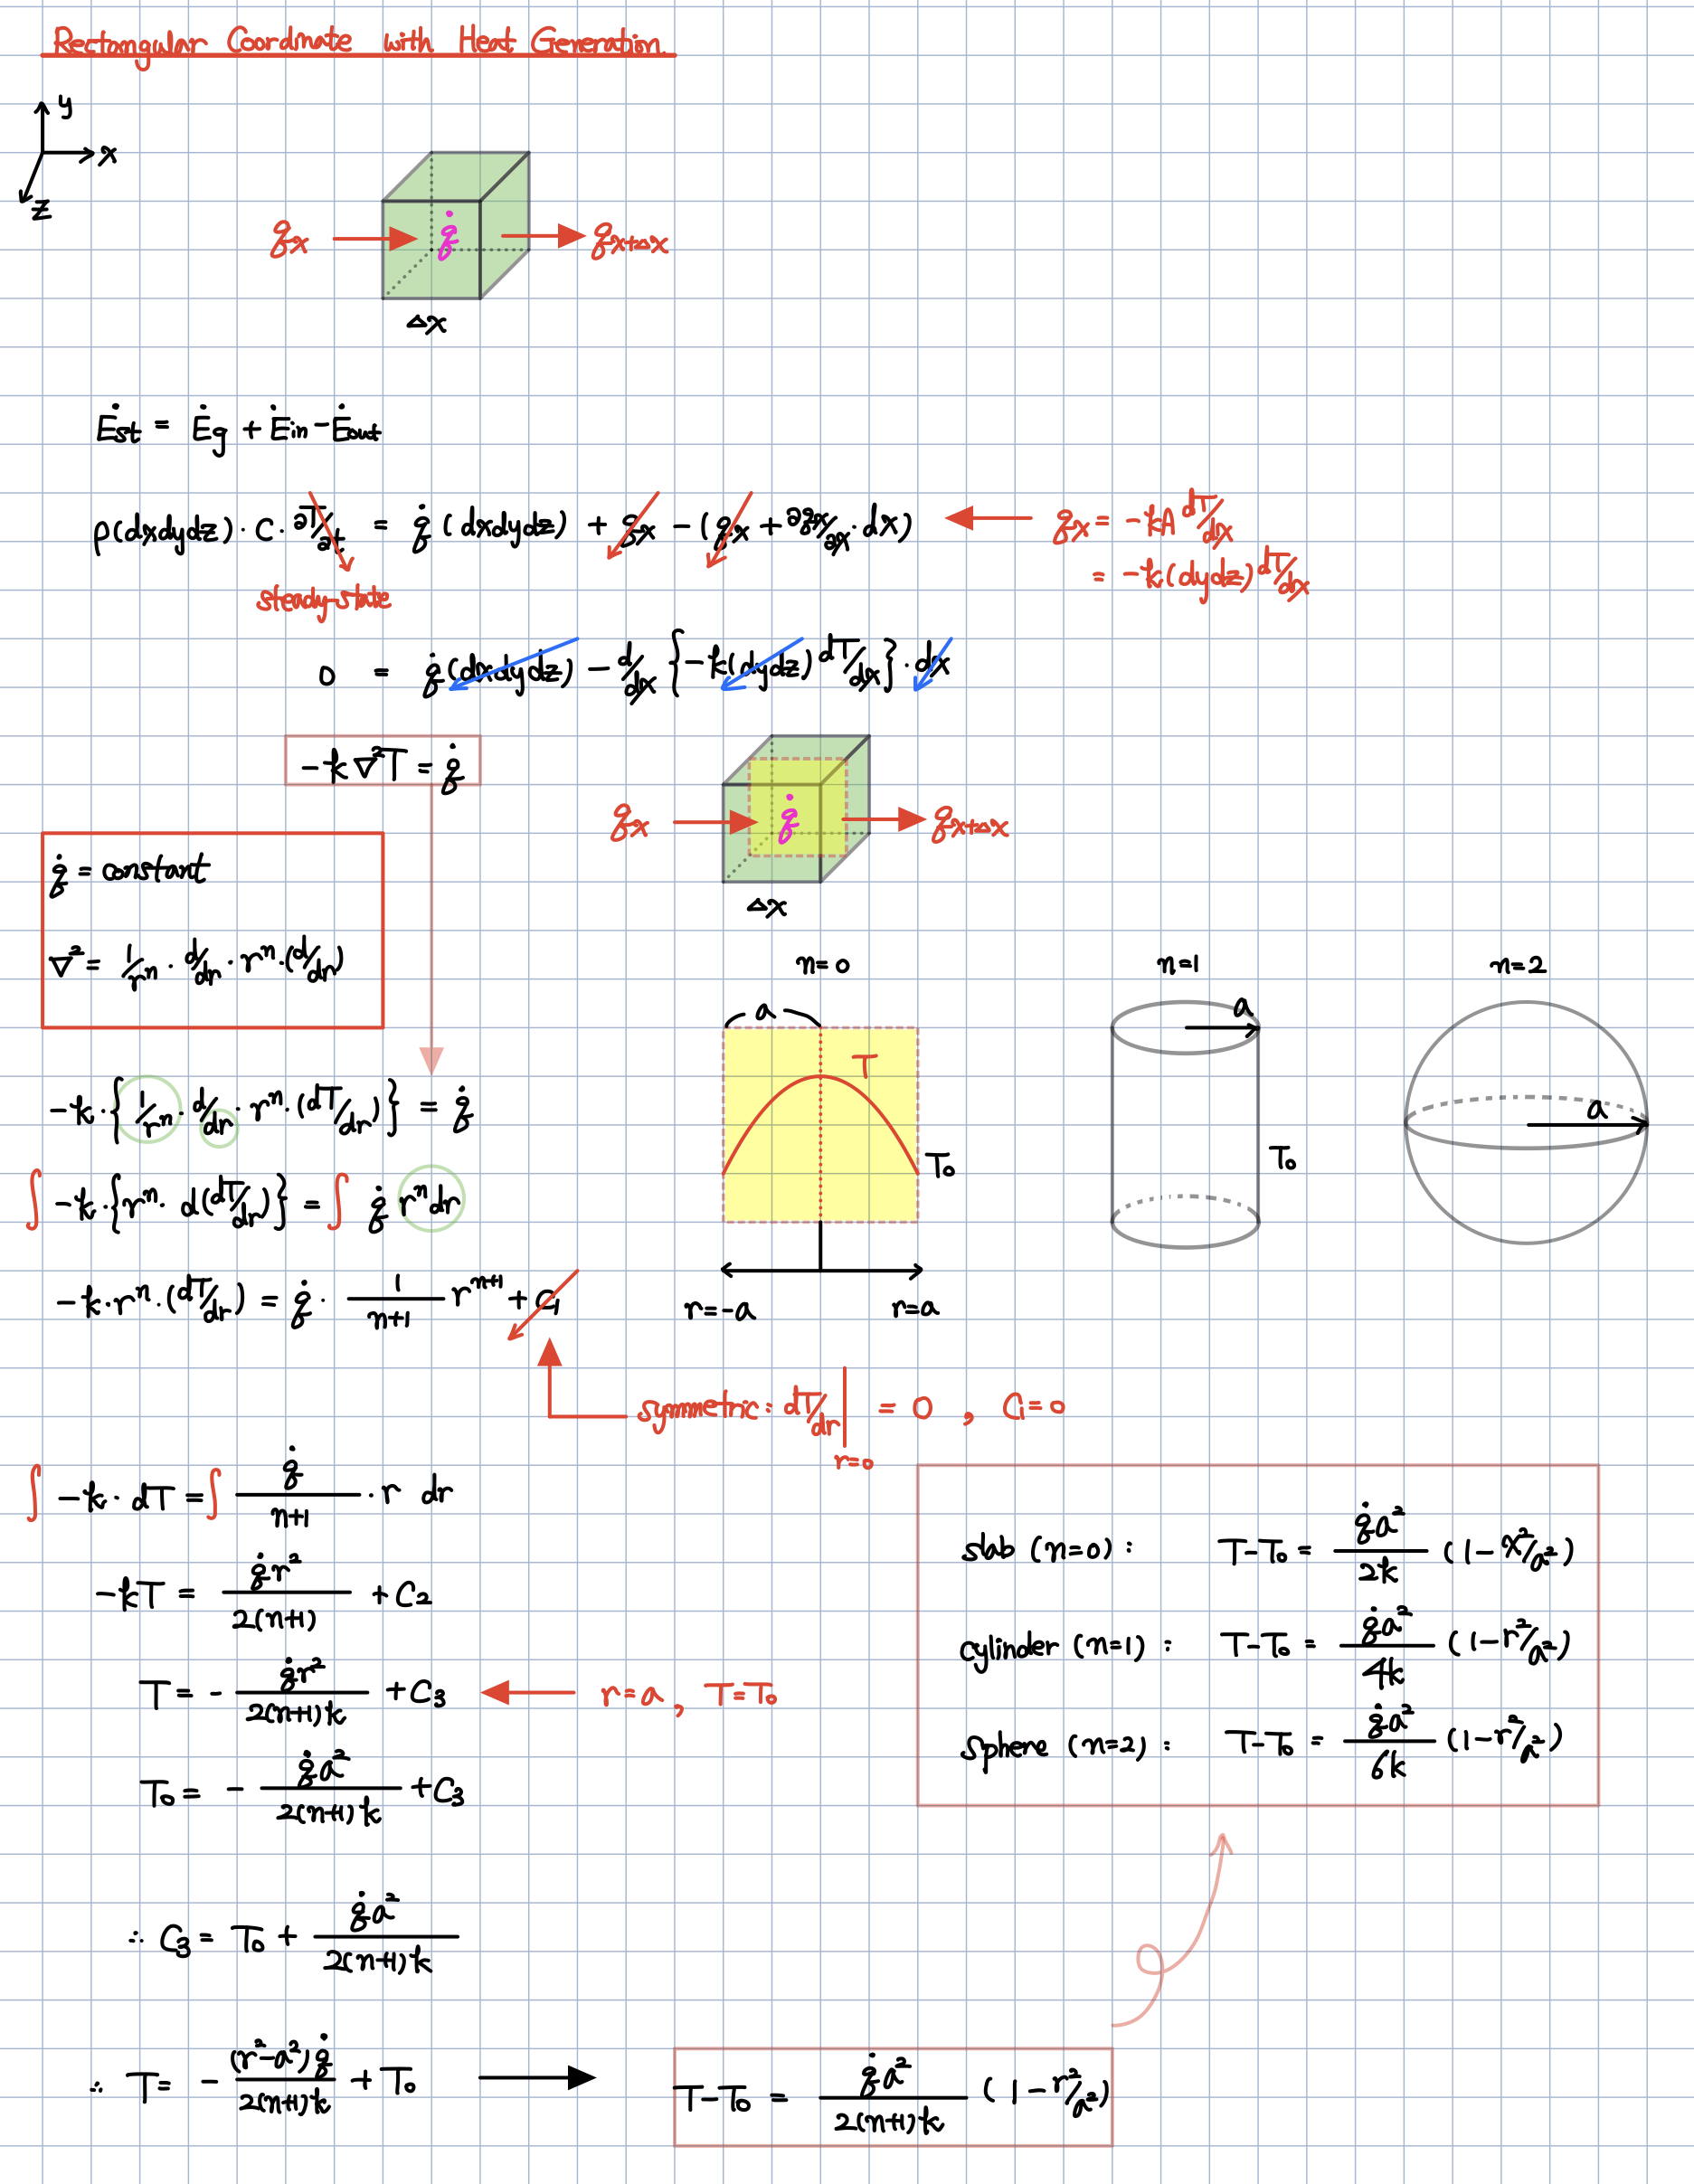 Rectangular Coordinate with Heat Generation
y
x
z
qx
q̇
qx+Δx
Δx
Ėst = Ėg + Ėin - Ėout
ρ(dxdydz)·C·∂T/∂t = q̇ (dxdydz) + qx - (qx + ∂qx/∂x · dx)
qx = -kA dT/dx
= -k(dydz) dT/dx
steady-state
0 = q̇(dxdydz) - d/dx {-k(dydz) dT/dx} · dx
-k∇²T = q̇
qx
q̇
qx+Δx
Δx
q̇ = constant
∇² = 1/rⁿ · d/dr · rⁿ·(d/dr)
n=0
n=1
n=2
a
T
T₀
r=-a
r=a
a
T₀
a
-k·{1/rⁿ · d/dr · rⁿ·(dT/dr)} = q̇
∫ -k·{rⁿ· d(dT/dr)} = ∫ q̇ rⁿdr
-k·rⁿ·(dT/dr) = q̇ · 1/(n+1) rⁿ⁺¹ + C₁
symmetric: dT/dr|r=0 = 0 , C₁=0
∫ -k· dT = ∫ q̇/(n+1) · r dr
-kT = q̇r²/2(n+1) + C₂
T = - q̇r²/2(n+1)k + C₃
r=a, T=T₀
T₀ = - q̇a²/2(n+1)k + C₃
slab (n=0) : T-T₀ = q̇a²/2k (1-x²/a²)
cylinder (n=1) : T-T₀ = q̇a²/4k (1-r²/a²)
Sphere (n=2) : T-T₀ = q̇a²/6k (1-r²/a²)
∴ C₃ = T₀ + q̇a²/2(n+1)k
∴ T = - (r²-a²)q̇/2(n+1)k + T₀
T-T₀ = q̇a²/2(n+1)k (1-r²/a²)